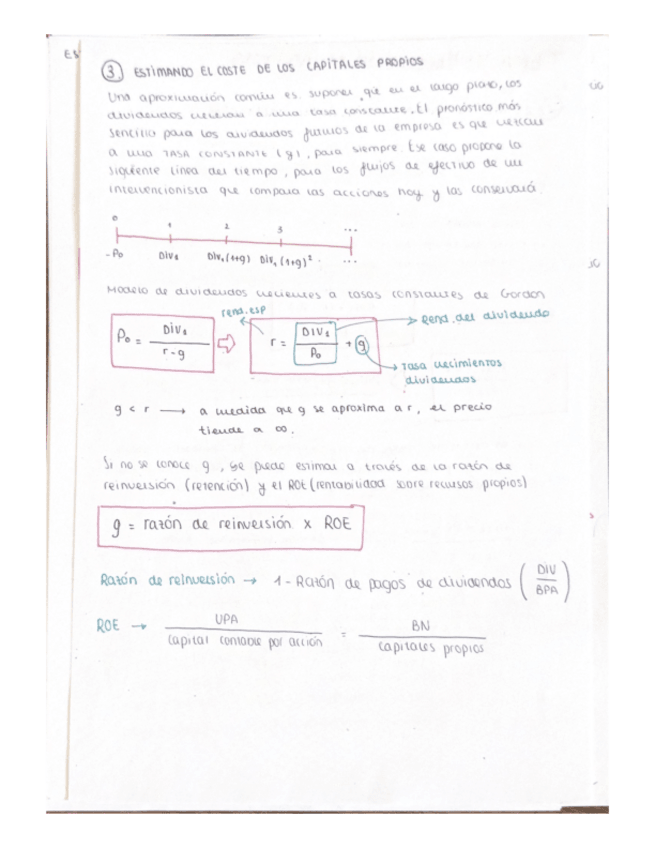 ES
③ ESTIMANDO EL COSTE DE LOS CAPITALES PROPIOS
Una aproximación común es suponer que en el largo plazo, los
dividendos crecerán a una tasa constante. El pronóstico más
sencillo para los dividendos futuros de la empresa es que crezcan
a una TASA CONSTANTE (g), para siempre. Ese caso propone la
siguiente línea del tiempo, para los flujos de efectivo de un
intervencionista que compara las acciones hoy y las conservará.
0 1 2 3 ...
-P₀ Div₁ Div₁(1+g) Div₁(1+g)² ...
Modelo de dividendos crecientes a tasas constantes de Gordon
rend. esp
P₀ = Div₁ / (r - g) ⇨ r = DIV₁ / P₀ + g → Rend. del dividendo
→ Tasa crecimientos
dividendos
g < r → a medida que g se aproxima a r, el precio
tiende a ∞.
Si no se conoce g, se puede estimar a través de la razón de
reinversión (retención) y el ROE (rentabilidad sobre recursos propios)
g = razón de reinversión x ROE
Razón de reinversión → 1 - Razón de pagos de dividendos (DIV / BPA)
ROE → UPA / capital contable por acción = BN / capitales propios